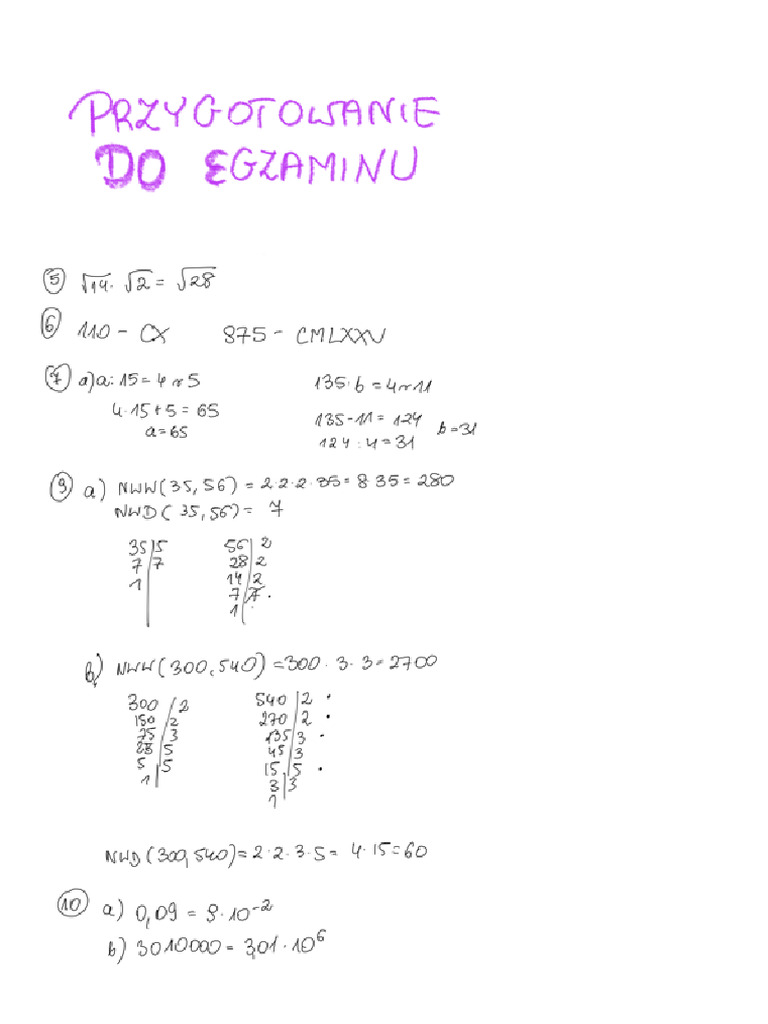 PRZYGOTOWANIE
DO EGZAMINU
5 √14 · √2 = √28
6 110 - CX 875 - CMLXXV
7 a) a : 15 = 4 r 5 135 · b = 4 r 11
4 · 15 + 5 = 65 135 - 11 = 124
a = 65 124 : 4 = 31 b = 31
9 a) NWW(35, 56) = 2 · 2 · 2 · 35 = 8 · 35 = 280
NWD(35, 56) = 7
35 | 5 56 | 2
7 | 7 28 | 2
1 | 14 | 2
7 | 7 ·
1 |
b) NWW(300, 540) = 300 · 3 · 3 = 2700
300 | 2 540 | 2 ·
150 | 2 270 | 2 ·
75 | 3 135 | 3 ·
5 45 | 3
5 | 5 15 | 5 ·
1 | 3 | 3
1
NWD(300, 540) = 2 · 2 · 3 · 5 = 4 · 15 = 60
10 a) 0,09 = 9 · 10⁻²
b) 3010000 = 3,01 · 10⁶